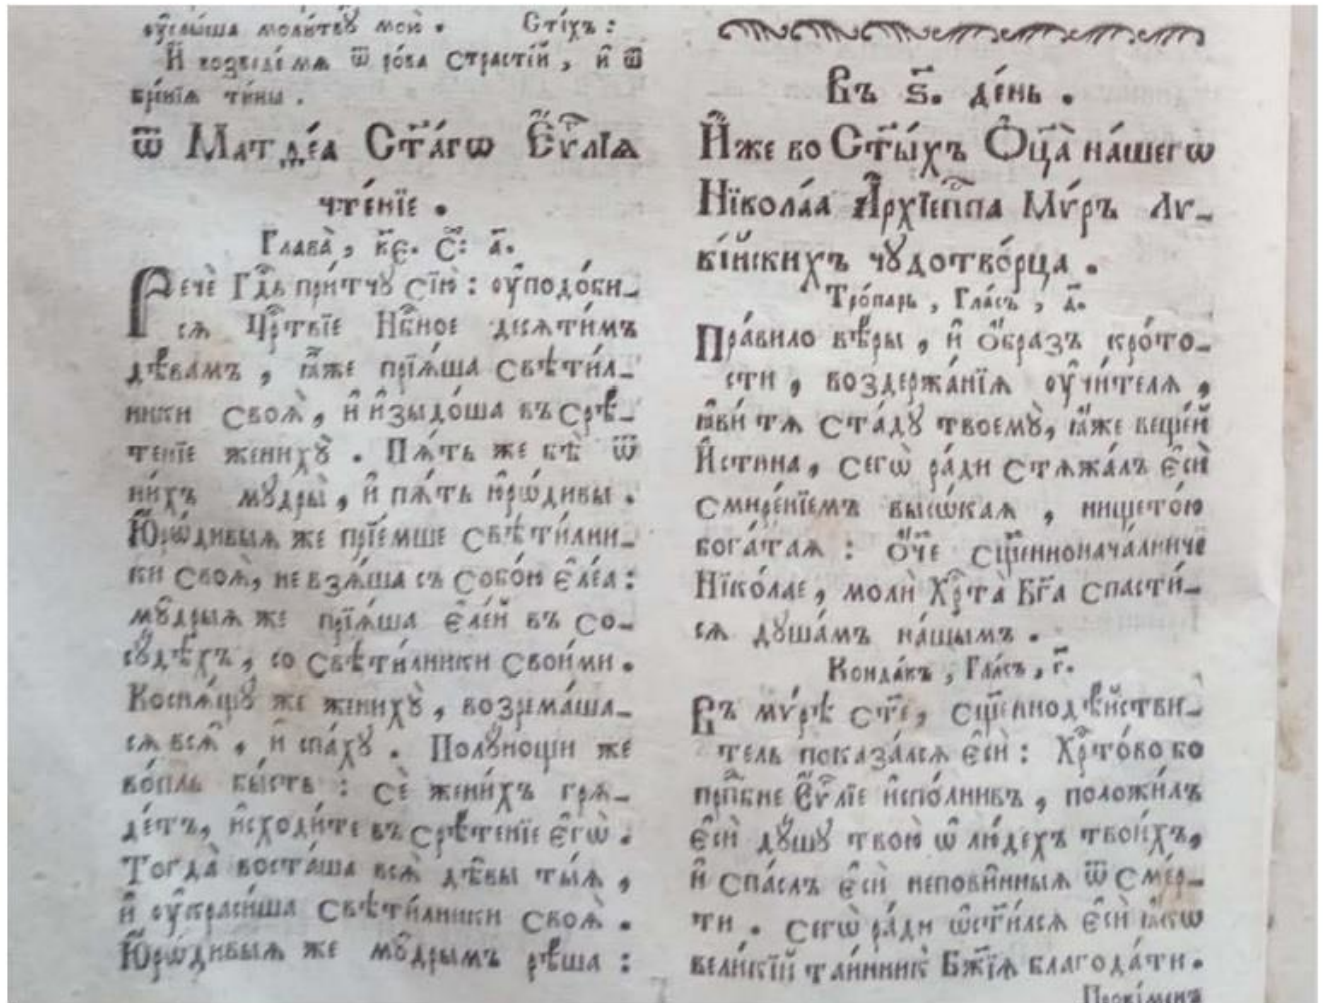 оуслыша молитвꙋ мою. Стіхъ:
И возведе мѧ ѿ рова страстїй, и҆ ѿ
бренїѧ тины.
ѿ Матѳе́а Ст҃а́гѡ Е҆ѵ҃лїѧ
чте́нїе.
Глава̀, к҃є. С҃: а҃.
Речѐ Гдⷭ҇ь при́тчꙋ сїю̀: оу҆подо́би-
сѧ Црⷭ҇твїе Нбⷭ҇ное десѧти́мъ
дѣ́вамъ, ꙗ҆́же прїѧ́ша свѣти́л-
ники своѧ̀, и҆ и҆зыдо́ша въ срѣ́-
тенїе женихꙋ̀. Пѧ́ть же бѣ̀ ѿ
ни́хъ мꙋдры̀, и҆ пѧ́ть ю҆рѡ́дивы.
Ю҆рѡ́дивыѧ же прїе́мше свѣти́лни-
ки своѧ̀, не взѧ́ша съ собо́ю є҆ле́а:
мꙋ́дрыѧ же прїѧ́ша є҆ле́й въ со-
сꙋ́дѣхъ, со свѣти́лники свои́ми.
Коснѧ́щꙋ же женихꙋ̀, воздрема́ша-
сѧ всѧ̀, и҆ спа́хꙋ. Полꙋ́нощи же
во́пль бы́сть: сѐ жени́хъ грѧ-
де́тъ, и҆сходи́те въ срѣ́тенїе є҆гѡ̀.
Тогда̀ воста́ша всѧ̀ дѣ́вы ты́ѧ,
и҆ оу҆краси́ша свѣти́лники своѧ̀.
Ю҆рѡ́дивыѧ же мꙋ́дрымъ рѣ́ша:
Въ ѕ҃. де́нь.
И҆́же во Ст҃ы́хъ Ѻ҆ц҃а̀ на́шегѡ
Нїкола́а А҆рхїепⷭ҇па Мѵ́ръ Лѵ-
кі́йскихъ чꙋдотво́рца.
Тро́парь, Гла́съ, д҃.
Пра́вило вѣ́ры, и҆ ѻ҆́бразъ кро́то-
сти, воздержа́нїѧ оу҆чи́телѧ,
ꙗ҆ви́ тѧ ста́дꙋ твоемꙋ̀, ꙗ҆́же веще́й
И҆́стина, сегѡ̀ ра́ди стѧжа́лъ є҆сѝ
смире́нїемъ высѡ́каѧ, нището́ю
бога́таѧ: ѻ҆́ч҃е сщ҃енноначáлниче
Нїко́лае, молѝ Хрⷭ҇та̀ Бг҃а спасти́-
сѧ дꙋша́мъ на́шымъ.
Конда́къ, Гла́съ, г҃.
Въ мѵ́рѣ ст҃е, сщ҃еннодѣ́йстви-
тель показа́лсѧ є҆сѝ: Хрⷭ҇то́во бо
прпⷣбне Е҆ѵ҃лїе и҆спо́лнивъ, положи́лъ
є҆сѝ дꙋ́шꙋ твою̀ ѡ҆ лю́дехъ твои́хъ,
и҆ спа́слъ є҆сѝ непови́нныѧ ѿ сме́р-
ти. Сегѡ̀ ра́ди ѡ҆ст҃и́лсѧ є҆сѝ ꙗ҆́кѡ
вели́кїй таи́нникъ Бж҃їѧ благода́ти.
Прокіменъ